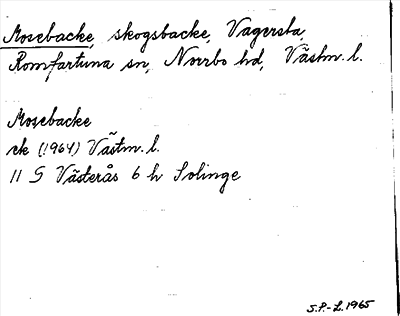 Mosebacke, skogsbacke, Vagersta,
Romfartuna sn, Norrbo hd, Västm. l.
Mosebacke
ek (1964) Västm. l.
11 G Västerås 6 h Solinge
S.P.-L. 1965